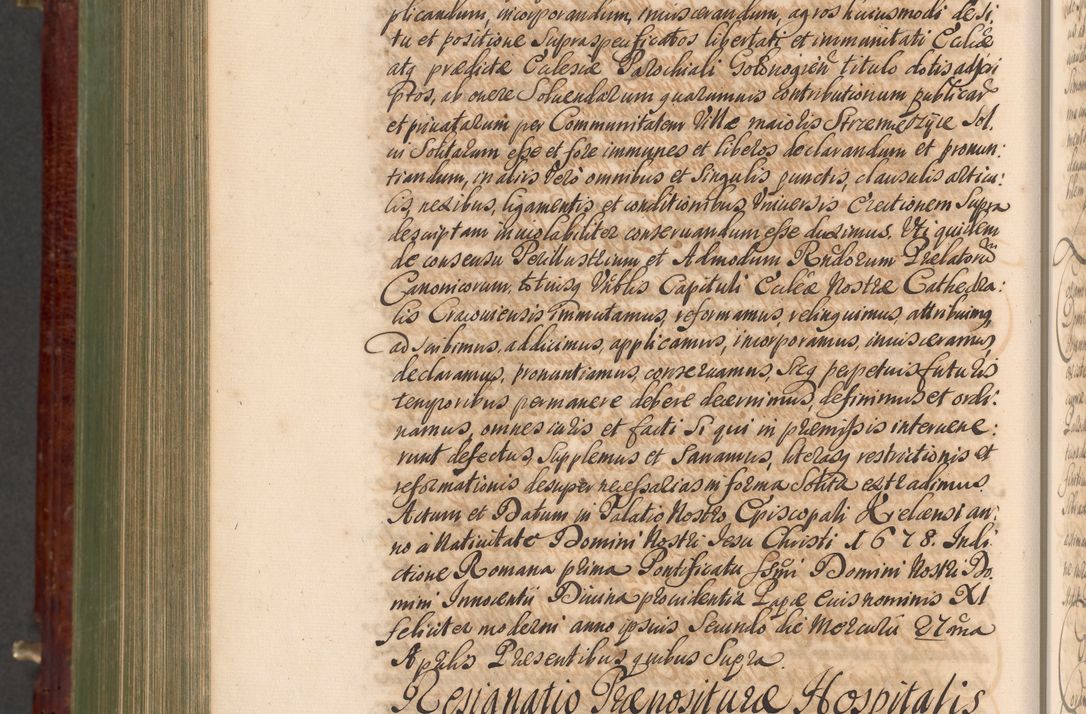 plicandum, incorporandum, inuiscerandum, agros huiusmodi de Si,
tu et positione Supraspecificatos libertati et immunitati Eccl̃æ
atq̃ prædictæ Ecclesiæ Parochiali Gołonogien̄ titulo dotis adscri
ptos, ab onere Soluendarum quarumuis contributionum publicar̄
et priuatarum per Communitatem Villæ maioris Strzemięszyce Sol,
ui Solitarum esse et fore immunes et liberos declarandum et pronun:
tiandum, in alijs Verò omnibus et Singulis punctis, clausulis articu:
lis, nexibus, ligamentis et conditionibus Vniuersis Erectionem Supra
descriptam inuiolabiliter conseruandum esse duximus. Vti quidem
de consensu Perillustrium et Admodum Rn̄dorum Prælatorū
Canonicorum, totiusq̃ Vn̄blis Capituli Eccl̃æ Nostræ Cathedra:
lis Cracouiensis immutamus, reformamus, relinquimus, attribuimq̃
adscribimus, addicimus, applicamus, incorporamus, inuisceramus,
declaramus, pronuntiamus, conseruamus, Sicq̃ perpetuis futuris
temporibus permanere debere decernimus, definimus et ordi:
namus, omnes iuris et facti Si qui in præmissis interuene:
runt defectus, Supplemus et Sanamus, literasq̃ restrictionis et
reformationis desuper necessarias in forma Solita extradimus.
Actum et Datum in Palatio Nostro Episcopali Kielcensi an:
no à Natiuitate Domini Nostri Jesu Christi 1678. Indi
ctione Romana prima Pontificatu Ss̄mi Domini Nostri Do,
mini Innocentii Diuina prouidentia Papæ eius nominis XI
feliciter moderni anno ipsius Secundo die Mercurii 27ma
Aprilis Præsentibus quibus Supra.
Resignatio Præposituræ Hospitalis